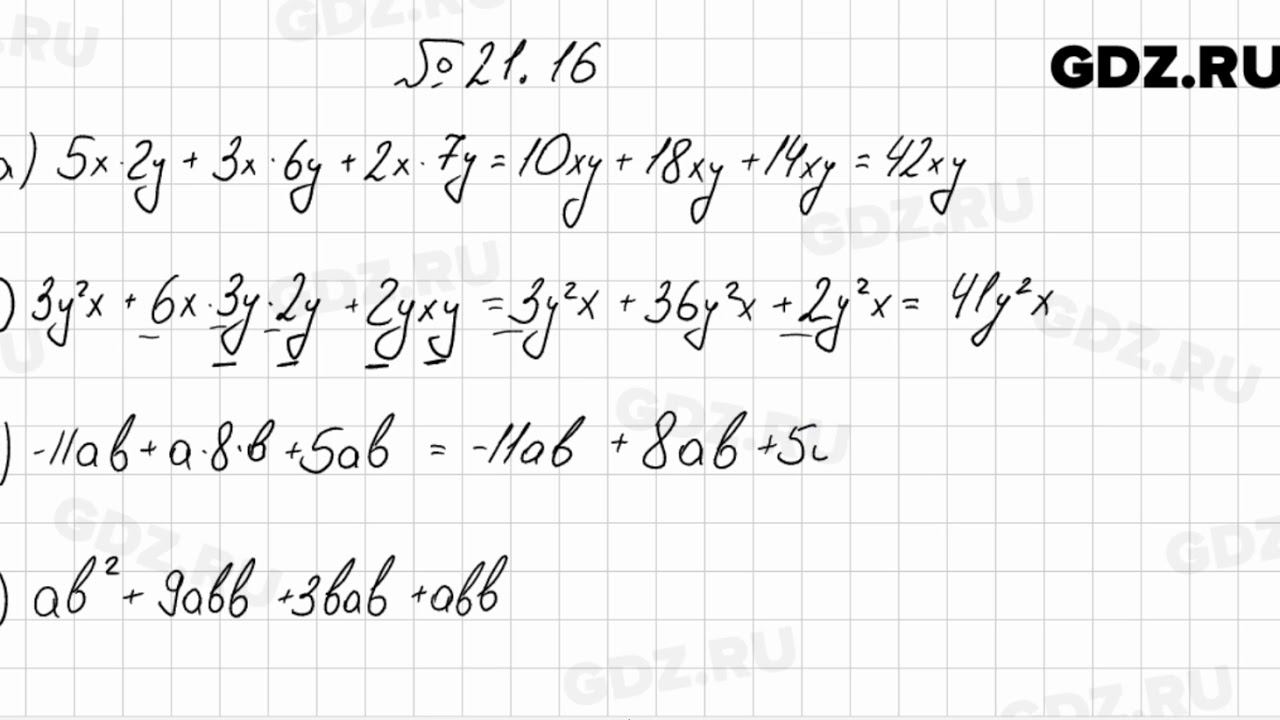 № 21.16
GDZ.RU
а) 5x·2y + 3x·6y + 2x·7y = 10xy + 18xy + 14xy = 42xy
) 3y²x + 6x·3y·2y + 2yxy = 3y²x + 36y²x + 2y²x = 41y²x
) -11ab + a·8·b + 5ab = -11ab + 8ab + 5
) ab² + 9abb + 3bab + abb